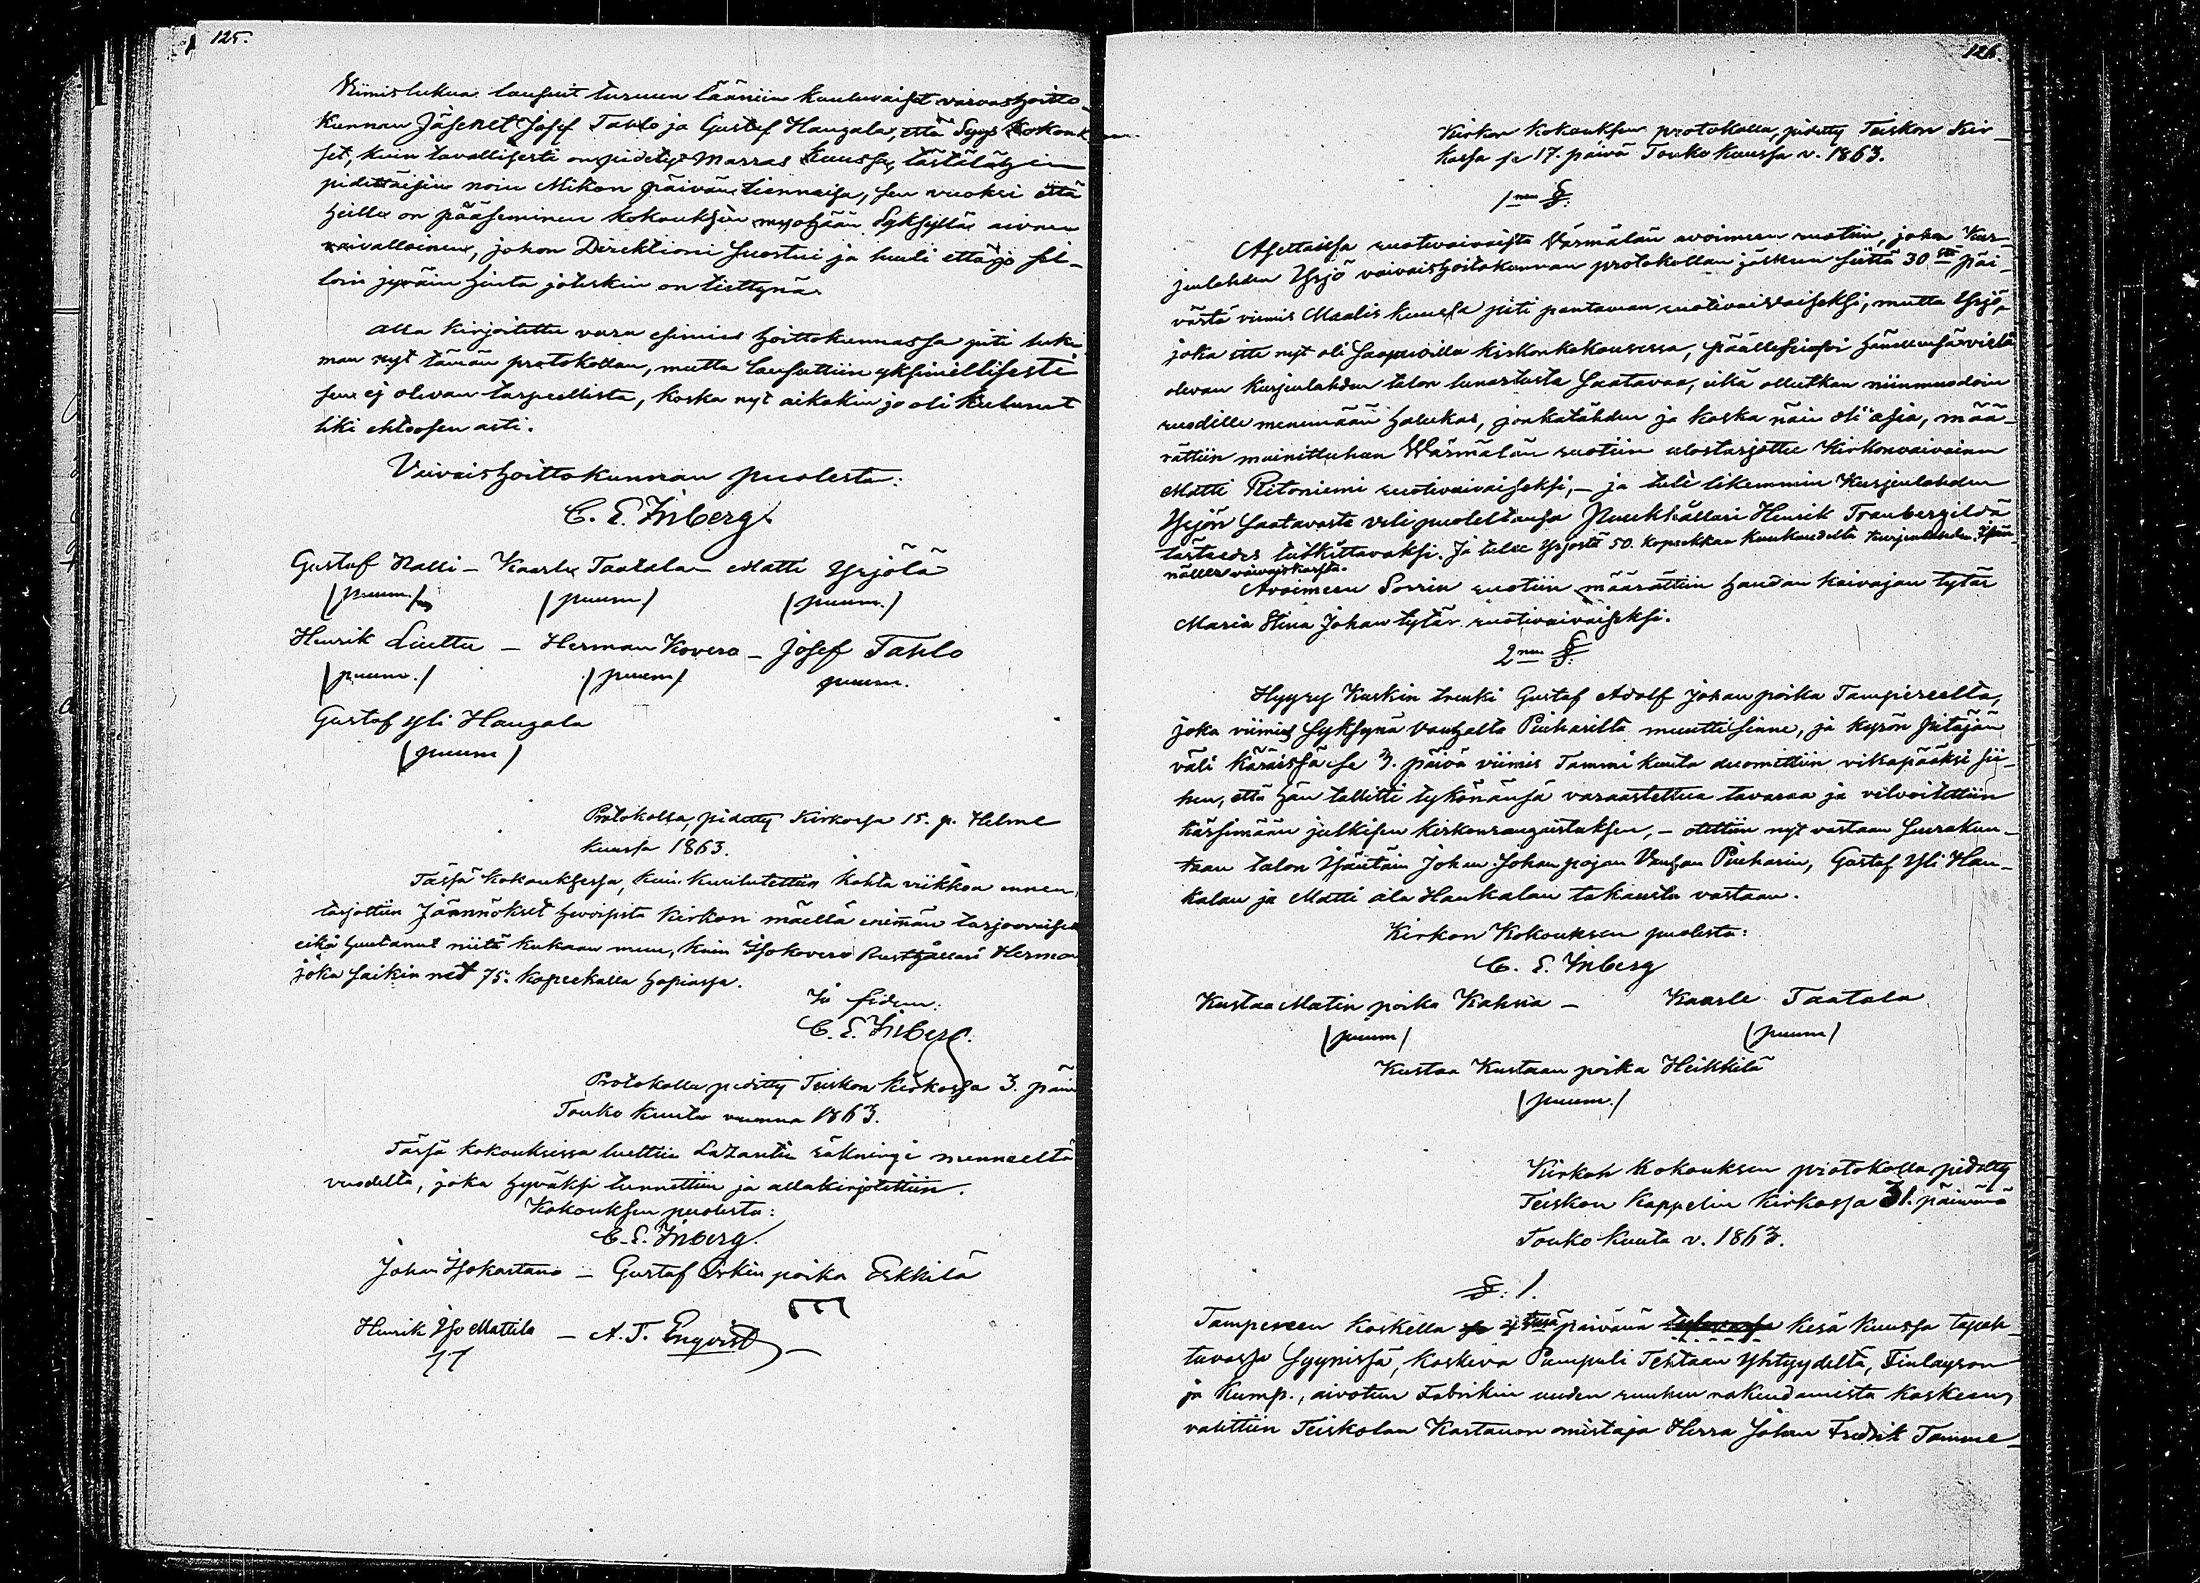 125.
Viimis lukua lausuit turuun Lääniin kuuluvaiset vaivashoitto-
kunnan Jäsenet Josef Tahlo ja Gustaf Haugala, että Syys kokouk-
set, kuin tavallisesti on pidetyt Marras kuussa, tästälähin
pidettäisiin noin Mikon päivän tiennoisa, sen vuoksi että
heille on pääseminen kokouksiin myöhään Syksyllä aivan
vaivalloinen, johon Direktioni suostui ja luuli että jo sil-
loin jyväin hinta joteskin on tiettynä.
Alla kirjoitettu vara esimies hoittokunnassa piti luke-
man nyt tämän protokollan, mutta lausuttiin yksimielisesti
sen ej olevan tarpeellista, koska nyt aikakin jo oli kulunut
liki ehtoosen asti.
Vaivaishoittokunnan puolesta:
C. E. Inberg.
Gustaf Nalli - Kaarle Taatala - Matti Yrjölä
/puum/ /puum/ /puum./
Henrik Liettu - Herman Kovero - Josef Tahlo
/puum./ /puum/ puum.
Gustaf yli Haugala
/puum/
Protokolla, pidetty Kirkossa 15. p. Helme
kuussa 1863.
Tässä kokouksessa, kuin kuulutettiin kahta viikkoa ennen,
tarjottiin Jäännökset hevoisista kirkon mäellä enimmän tarjoovaisel
eikä huutanut niitä kukaan muu, kuin Isokovero Rusthållari Herman
joka saikin net 75. kopeekalla hopiassa.
In fidem:
C. E. Inberg.
Protokolla pidetty Teiskon kirkossa 3. päiv
Touko kuuta vuonna 1863.
Tässä kokouksessa luettiin Lazaretin räkningi menneeltä
vuodelta, joka hyväksi tunnettiin ja allakirjoitettiin.
Kokouksen puolesta:
C. E. Inberg.
Johan Isokartano - Gustaf Erkin poika Erkkilä
Henrik Iso Mattila - A. T. Enqvist
126.
Kirkon kokouksen protokolla, pidetty Teiskon Kir-
kossa se 17. päivä Touko kuussa v. 1863.
1nen §.
Asettaissa ruotivaivaista Värmälän avoimeen ruotiin, johon Kur-
jenlahden Yrjö vaivaishoitokunnan protokollan jälkeen siittä 30stä päi-
västä viimis Maalis kuussa piti pantaman ruotivaivaiseksi, mutta Yrjö,
joka itte nyt oli saapuvilla kirkonkokouksessa, päällensä hänellensä vielä
olevan kurjenlahden talon lunastusta saatavaa, eikä ollutkan niinmuodoin
ruodille menemään halukas, jonkatähden ja koska näin oli asia, mää-
rättiin mainittuhun Wärmälän ruotiin ulostarjottu Kirkonvaivainen
Matti Ritoniemi ruotivaivaiseksi, - ja tuli likemmin Kurjenlahden
Yrjön saatavasta velipuoleltansa Ruukhållari Henrik Traubergilda
tästedes tutkittavaksi. Ja tulee Yrjöstä 50. kopeekkaa kuukaudelta Kurjenlahden Isän-
nälle vaivaiskassasta.
Avoimeen Sorrin ruotiin määrättiin haudan kaivajan tytär
Maria Stina Johan tytär ruotivaivaiseksi.
2nen §.
Hyyry Kuskin trenki Gustaf Adolf Johan poika Tampereelta,
joka viimis syksynä Vanhalta Piuharilta muutti sinne, ja kyrön pitäjän
väli käräissä se 3. päivä viimis Tammi kuuta duomittiin vikapääksi sii-
hen, että hän tallitti tykönänsä varaastettua tavaraa ja velvoitettiin
kärsimään julkisen kirkonrangaistuksen, - otettiin nyt vastaan seurakun-
taan talon Isäntäin Johan Johan pojan Vanhan Piuharin, Gustaf Yli Hau-
kalan ja Matti ala Haukalan takausta vastaan.
Kirkon Kokouksen puolesta:
C. E. Inberg
Kustaa Matin poika Kahria - Kaarle Taatala
/puum/ /puum/
Kustaa Kustaan poika Heikkilä
/puum./
Kirkon kokouksen protokolla pidetty
Teiskon Kappelin Kirkossa 31. päivänä
Touko kuuta v. 1863.
§. 1.
Tampereen Koskella se 4tenä päivänä tulevassa kesä kuussa tapah-
tuvassa Syynissä, koskeva Pumpuli Tehtaan Yhtyydeltä, Finlayson
ja Kump., aivotun Fabrikin uuden ruuhen rakendamista koskeen,
valittiin Teiskolan Kartanon omistaja Herra Johan Fredrik Tamme-